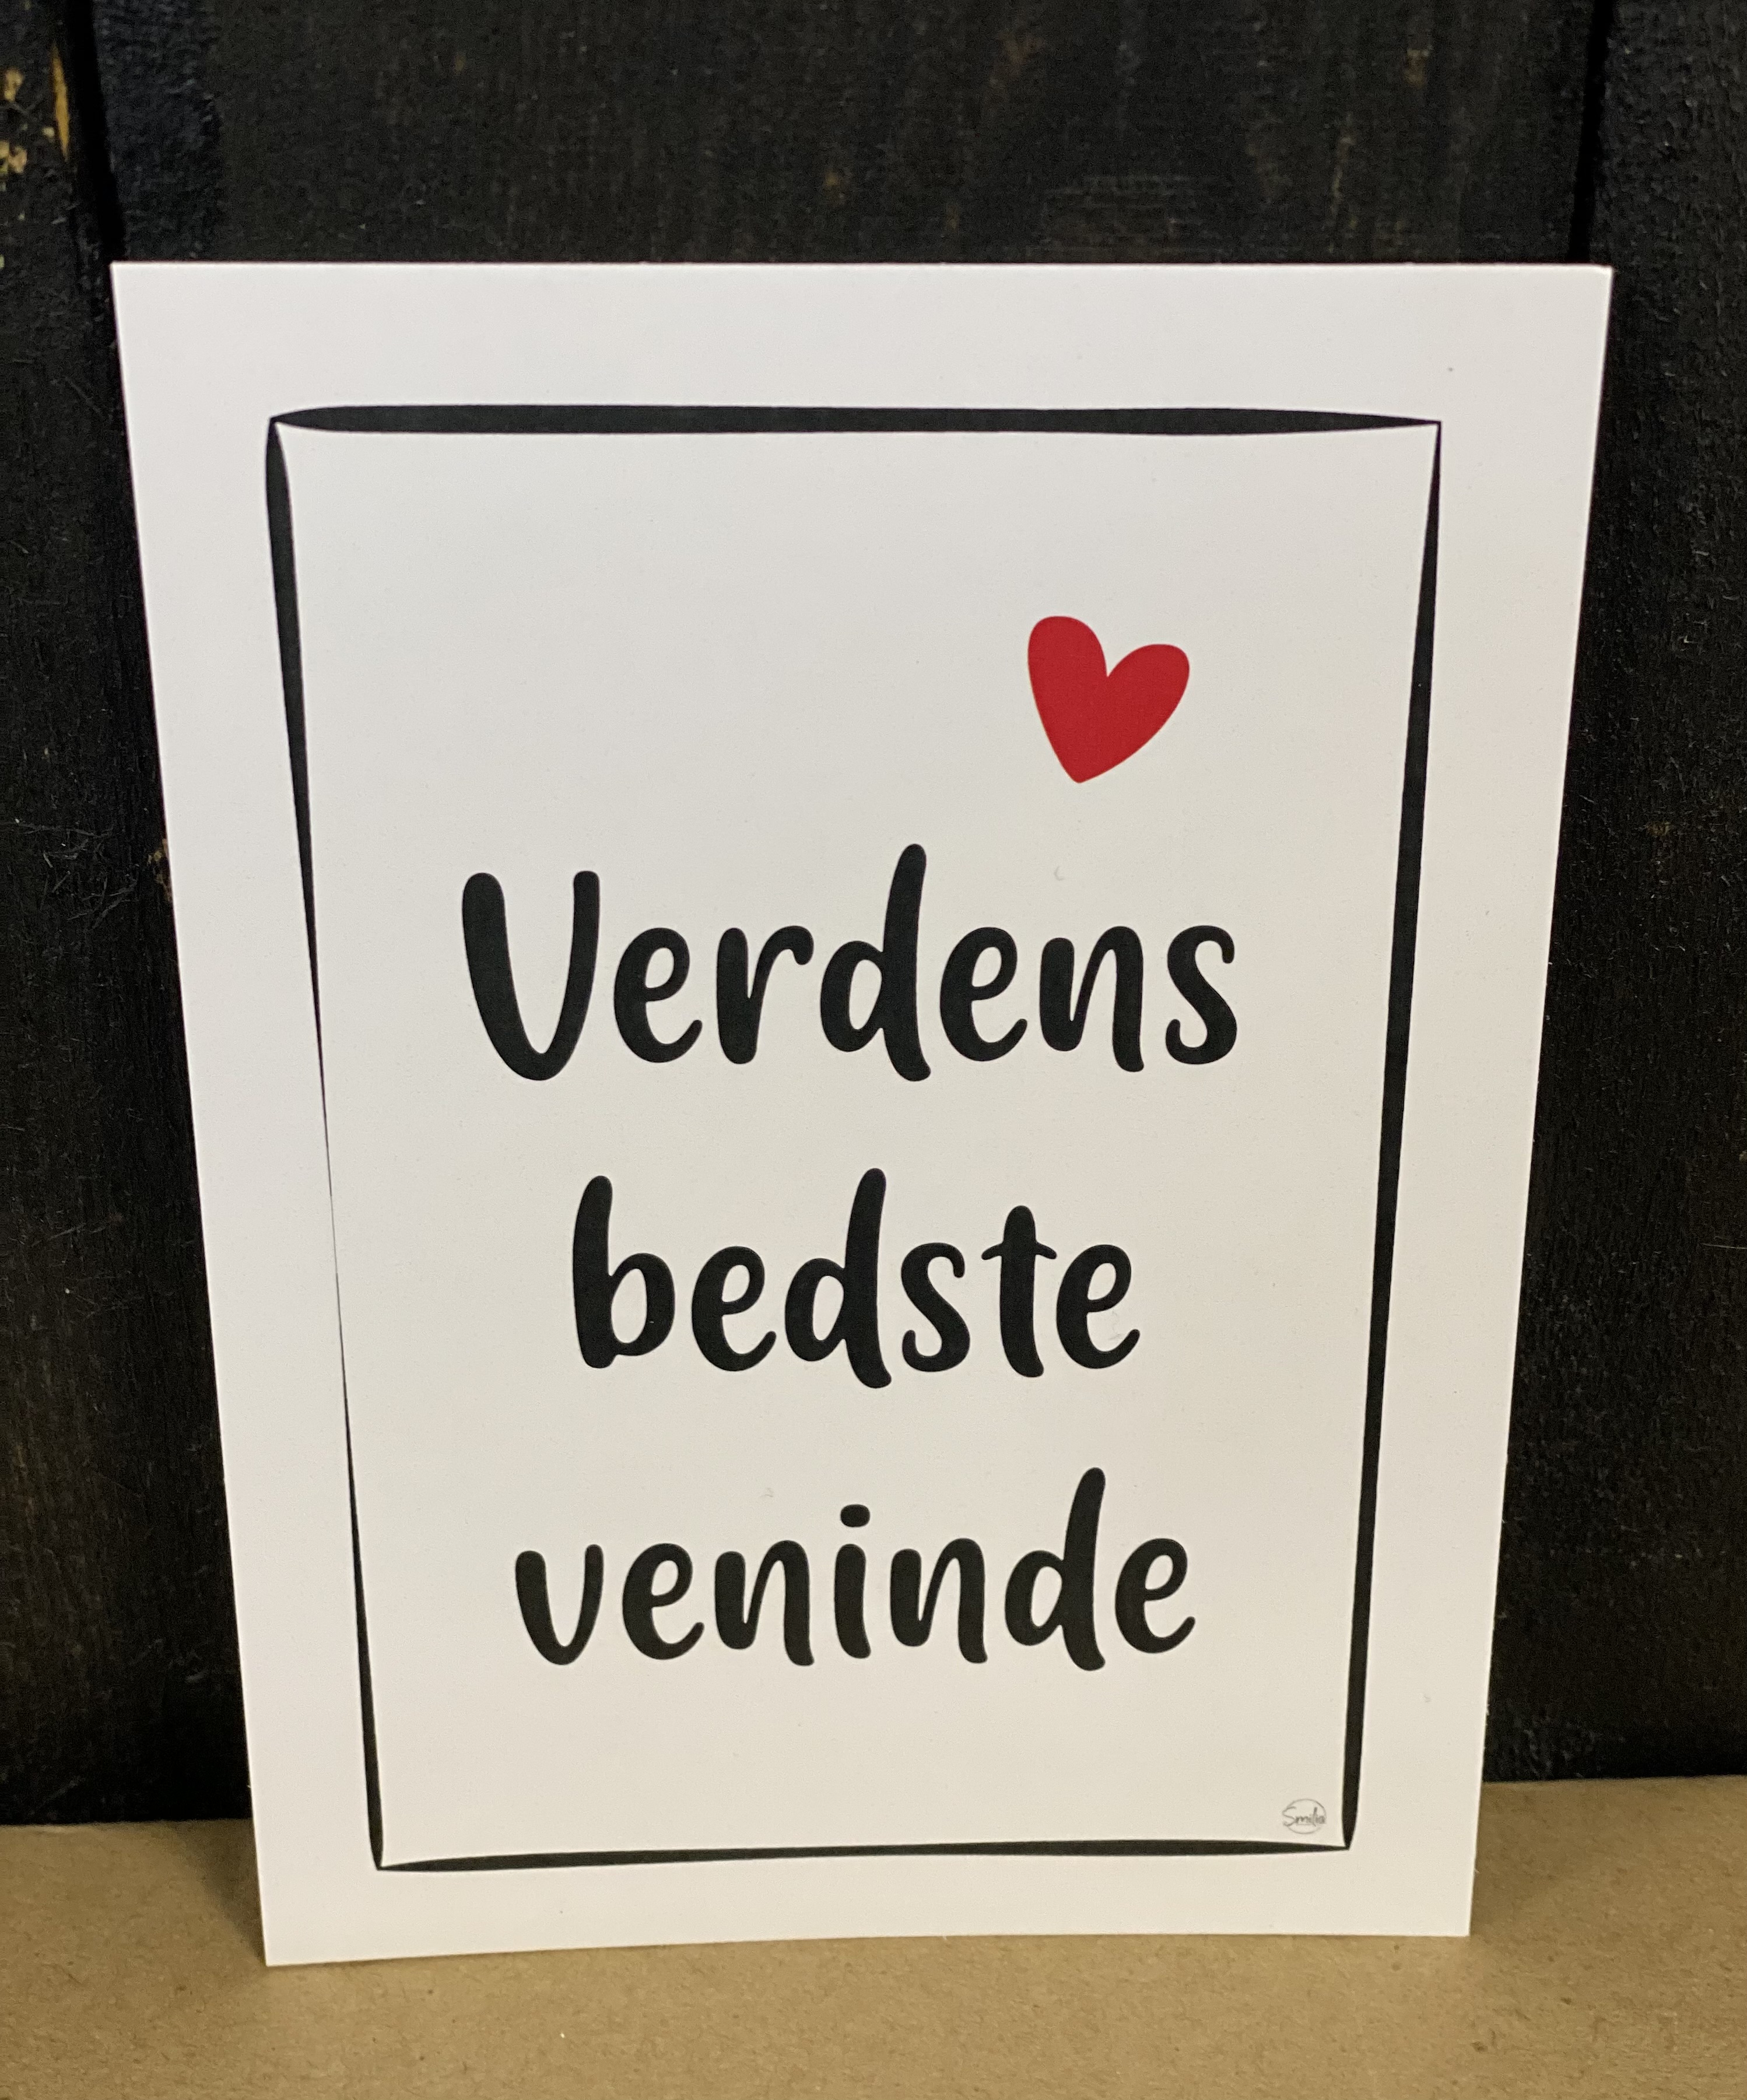 Verdens
bedste
veninde
Smilla